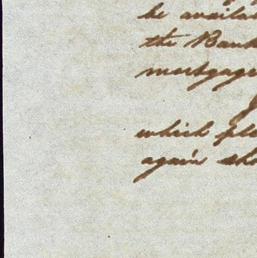 be availa
the Bank
mortgage
which ple
again sho